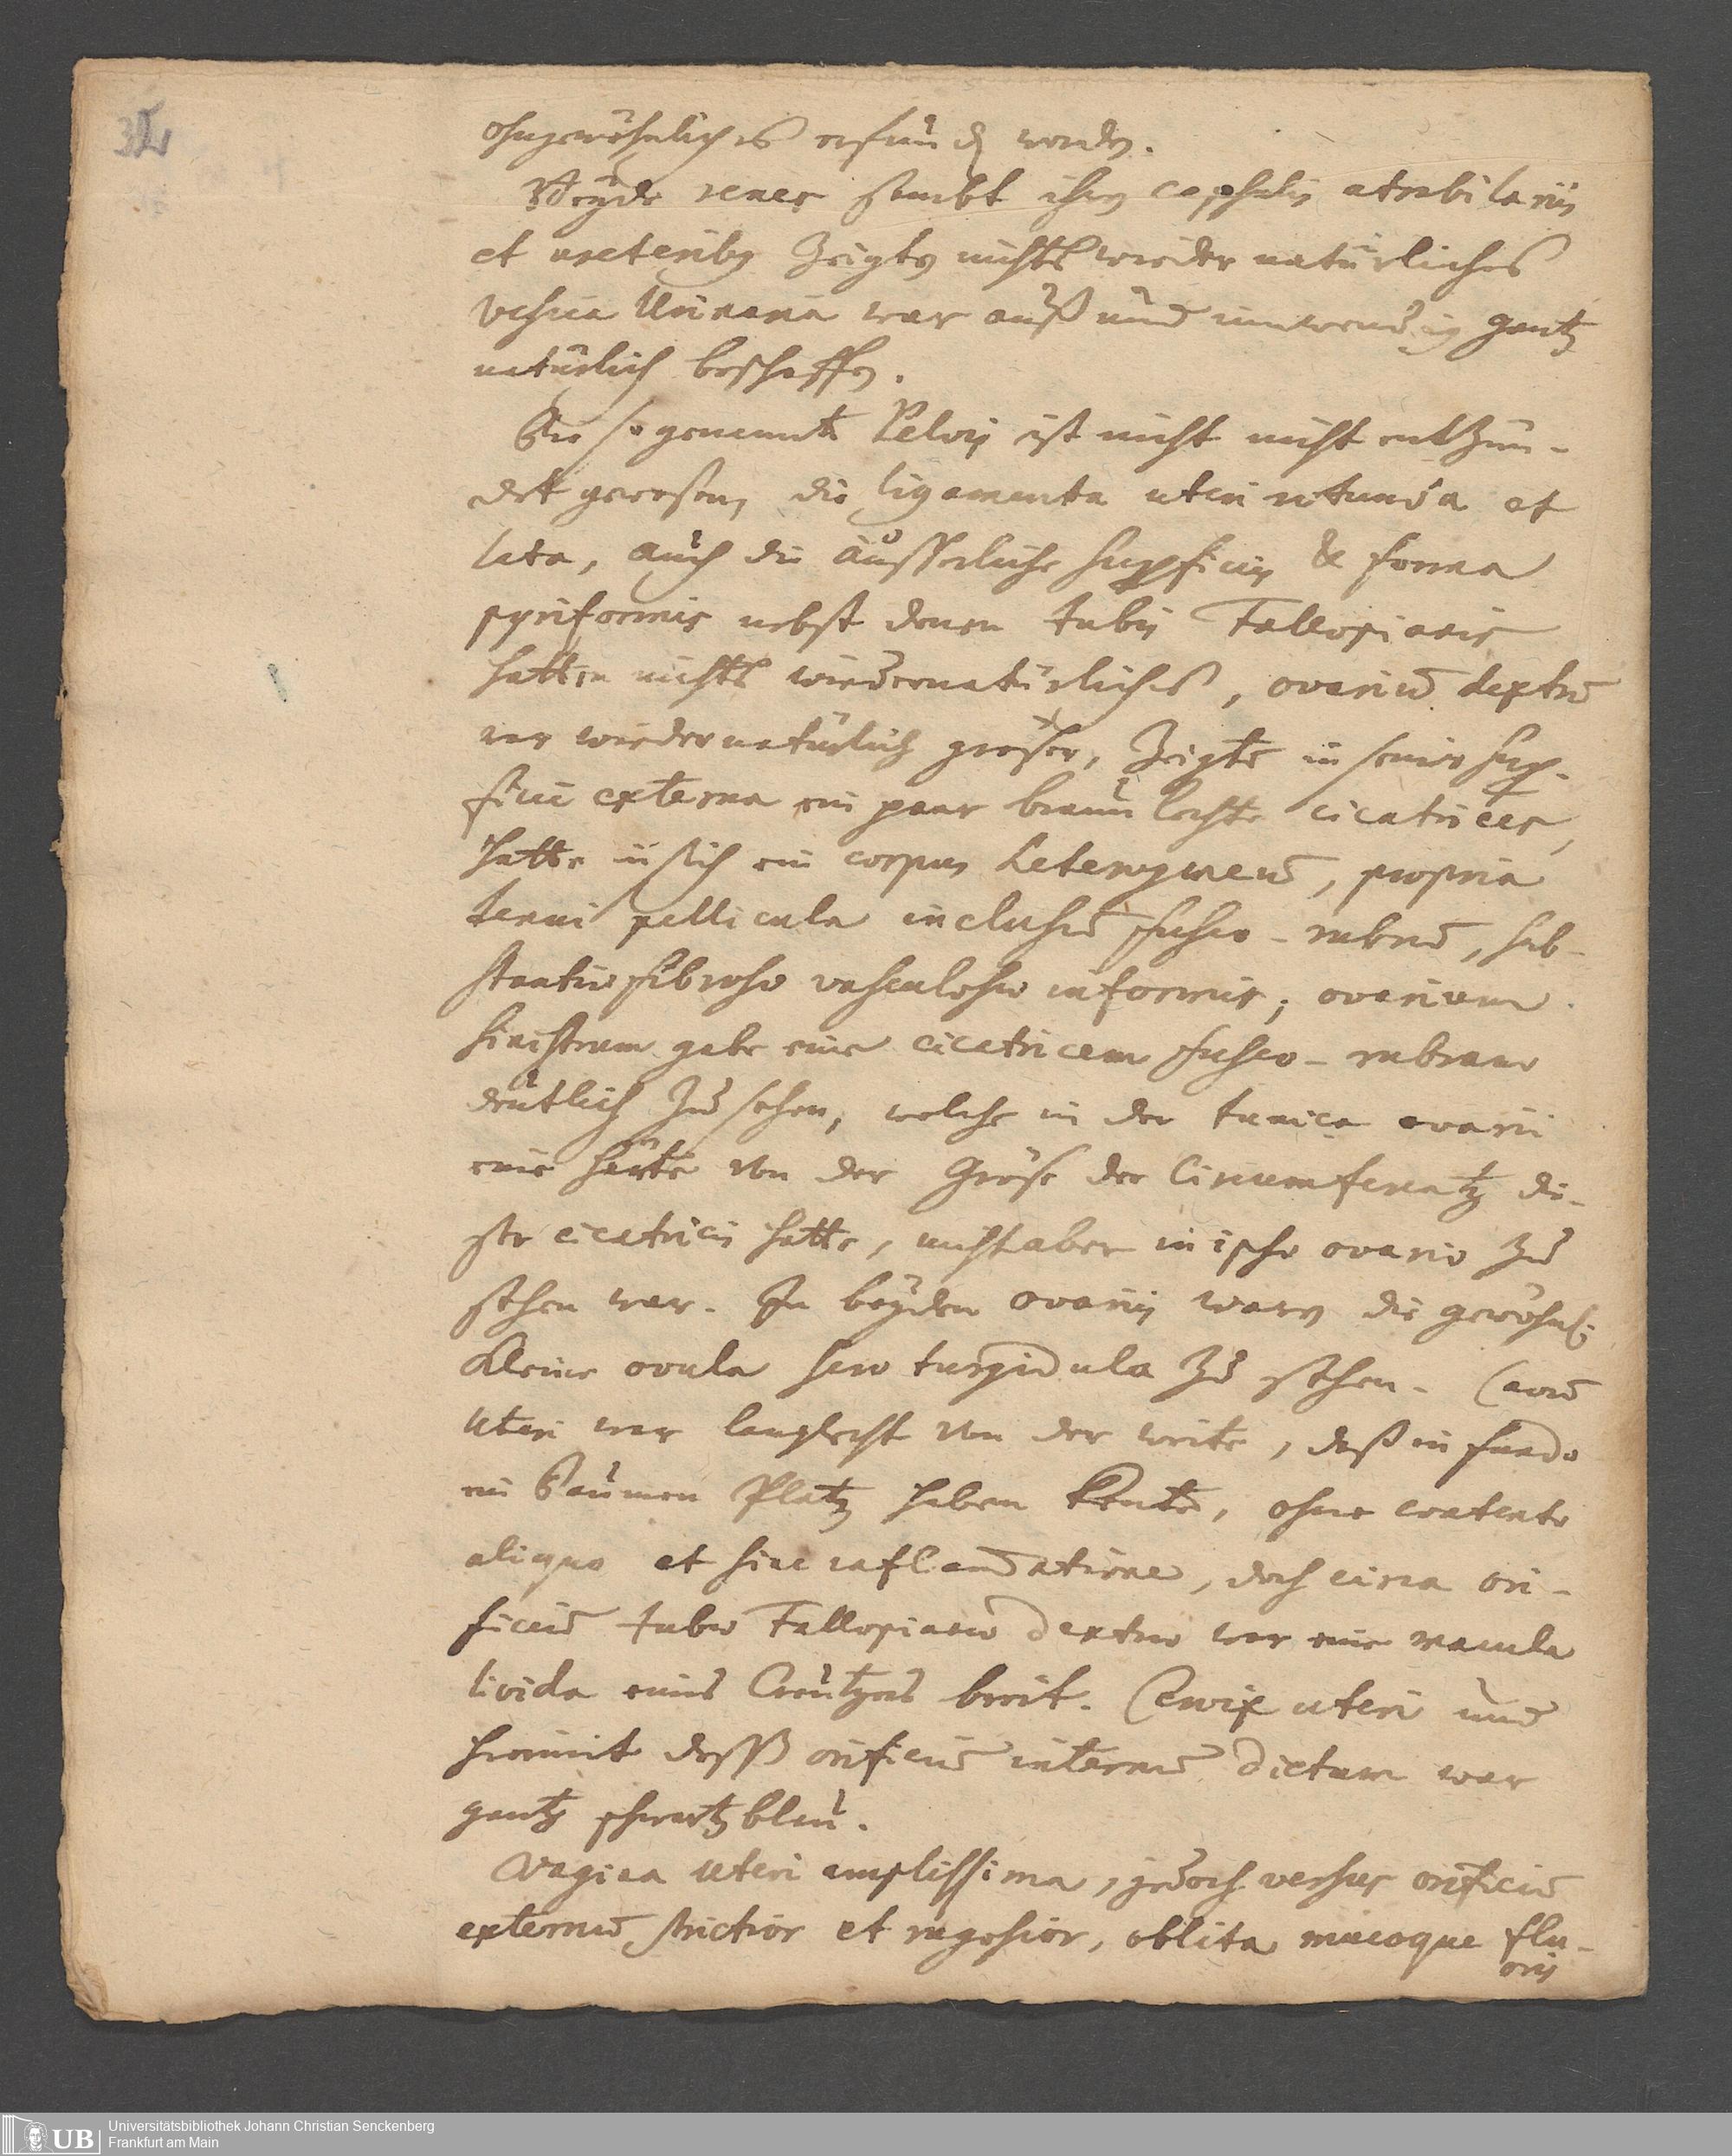 32
ohngewöhnliches erfunden worden.
Beyde renes sambt ihren capsulis atrabilariis
et ureteribus zeigten nichts wieder natürliches
Vesica Urinaria war auß und inwendig gantz
natürlich beschaffen.
Die so genannte Pelvis ist nicht nicht entzün-
det gewesen, die ligamenta uteri rotunda et
lata, auch die äusserliche superficies & forma
pyriformis nebst denen tubis Fallopianis
hatten nichts wiedernatürliches, ovarium dextrum
war wiedernatürlich größer, zeigte in seiner super-
ficie externa ein paar braun lechte cicatrices,
hatte in sich ein corpus heterogneum, propria
tenui pellicula inclusum fusco-rubrum, sub-
stantiae fibroso vasculosae informis; ovarium
sinistrum gabe eine cicatricem fusco-rubram
deutlich zu sehen, welche in der tunica ovarii
eine härte von der Größe der Circumferentz die-
ser cicatricis hatte, nicht aber in ipso ovario zu
sehen war. In beyden ovariis waren die gewöhnl:
kleine ovula seu turgidula zu sehen. Cavum
Uteri war langlecht von der weite, daß in fundo
ein Daumen Platz haben konte, ohne contento
aliquo et sine inflammatione, doch circa ori-
ficium tubae Fallopianae dextrae war eine macula
livida eines Creutzers breit. Cervix uteri und
hiermit deßß orificium internum dictum war
gantz schwartzblau.
Vagina uteri amplissima, jedoch versus orificium
externum strictior et rugosior, oblita mucoque flu-
oris
UB
Universitätsbibliothek Johann Christian Senckenberg
Frankfurt am Main